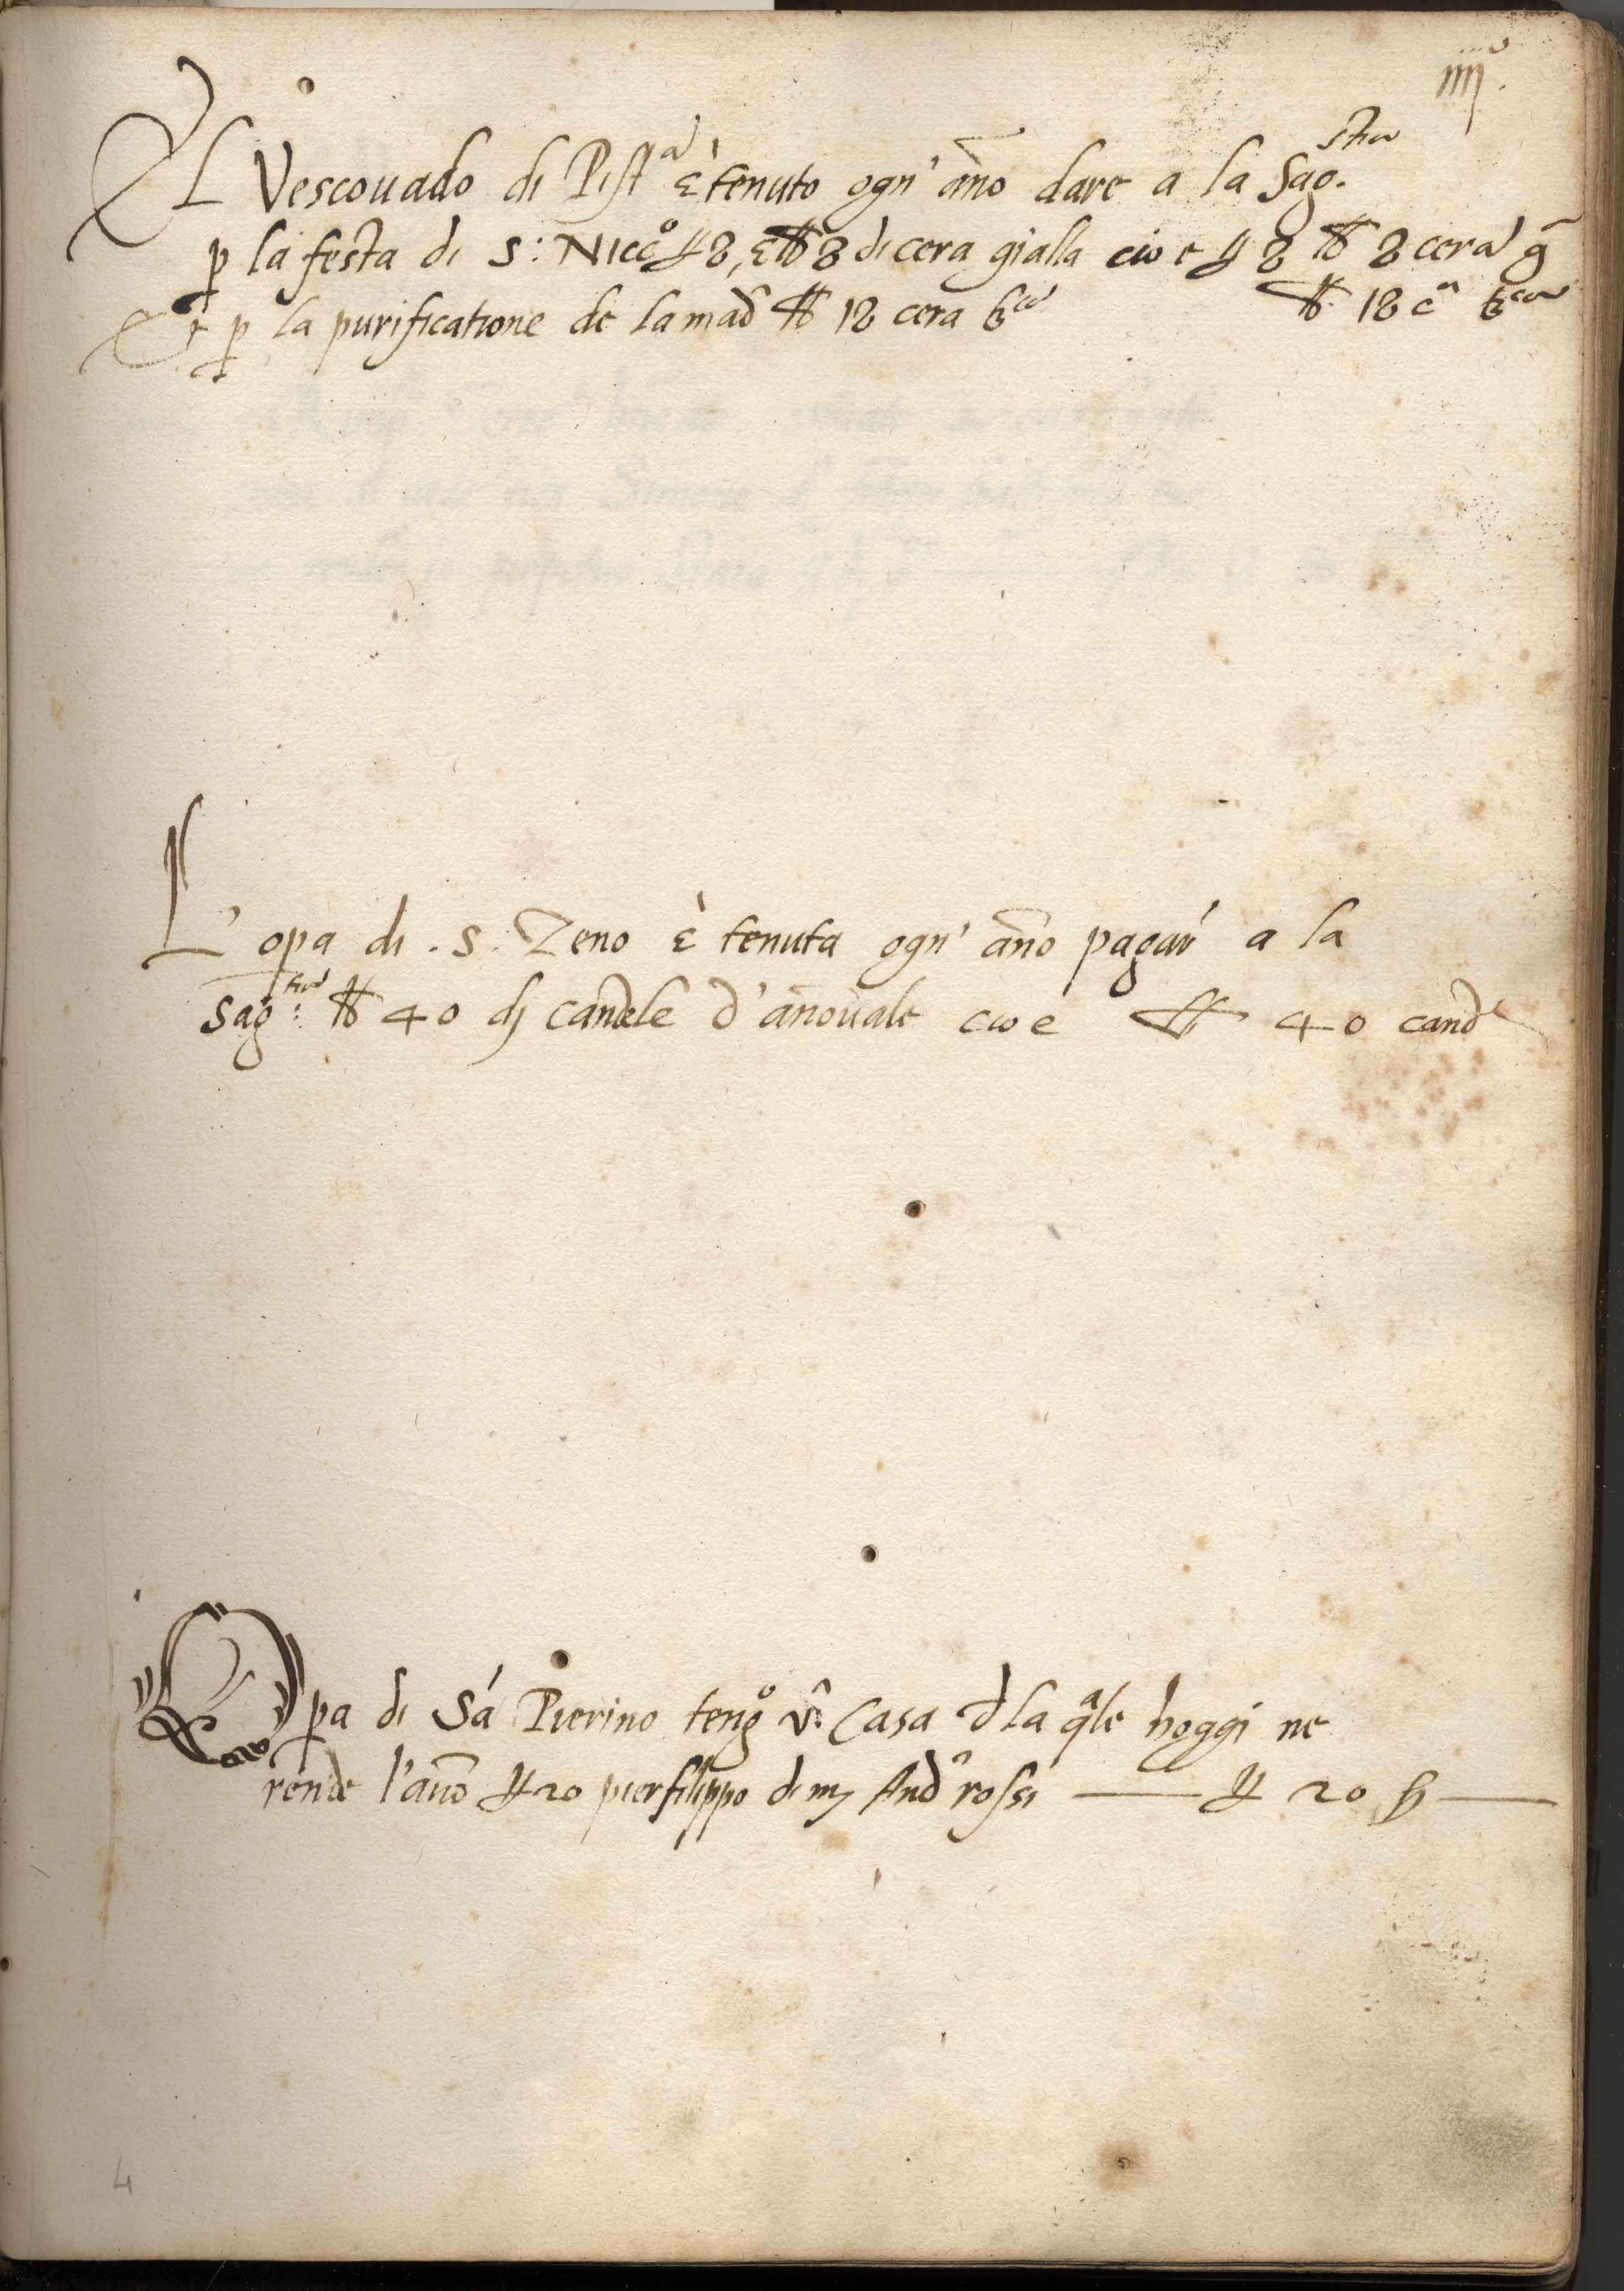 iiij°
El Vescouado di Pistª è tenuto ogn' año dare a la Sag.stia
p la festa di S: Nicc° ℔ 8, è ℔ 8 di cera gialla cioe ℔ 8 ℔ 8 cera g̃
Et p la purificatione de la mad̃ ℔ 18 cera bca ℔ 18 cª bca
L' opa di . S. Zeno è tenuta ogn' año pagar a la
Sagtia: ℔ 40 dj candele d'anouale cioe ℔ 40 cand
Opa di Sã Pierino teng° Casa d la qale hoggi ne
rende l'año 20 pierfilippo di mʒ And rossi 20
4